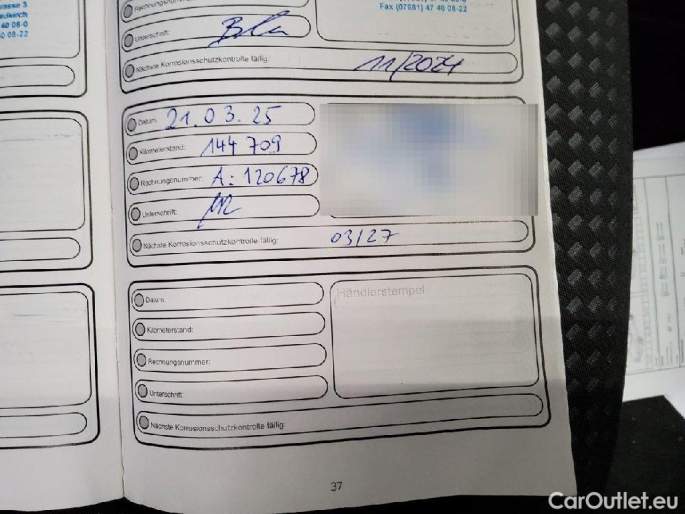 Fax (07581) 47 46 08-22
40 08-0
60 08-22
Unterschrift:
Nächste Korrosionsschutzkontrolle fällig: 11/2024
Datum: 21.03.25
Kilometerstand: 144 709
Rechnungsnummer: A: 120678
Unterschrift:
Nächste Korrosionsschutzkontrolle fällig: 03/27
Datum:
Händlerstempel
Kilometerstand:
Rechnungsnummer:
Unterschrift:
Nächste Korrosionsschutzkontrolle fällig:
37
CarOutlet.eu